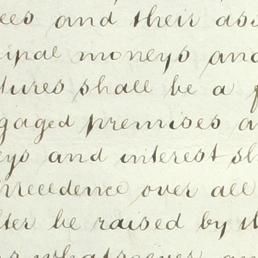 ees and their ass
ipal moneys and
tures shall be a f
gaged premises a
eys and interest sh
precedence over all
fter be raised by th
whatsoever an